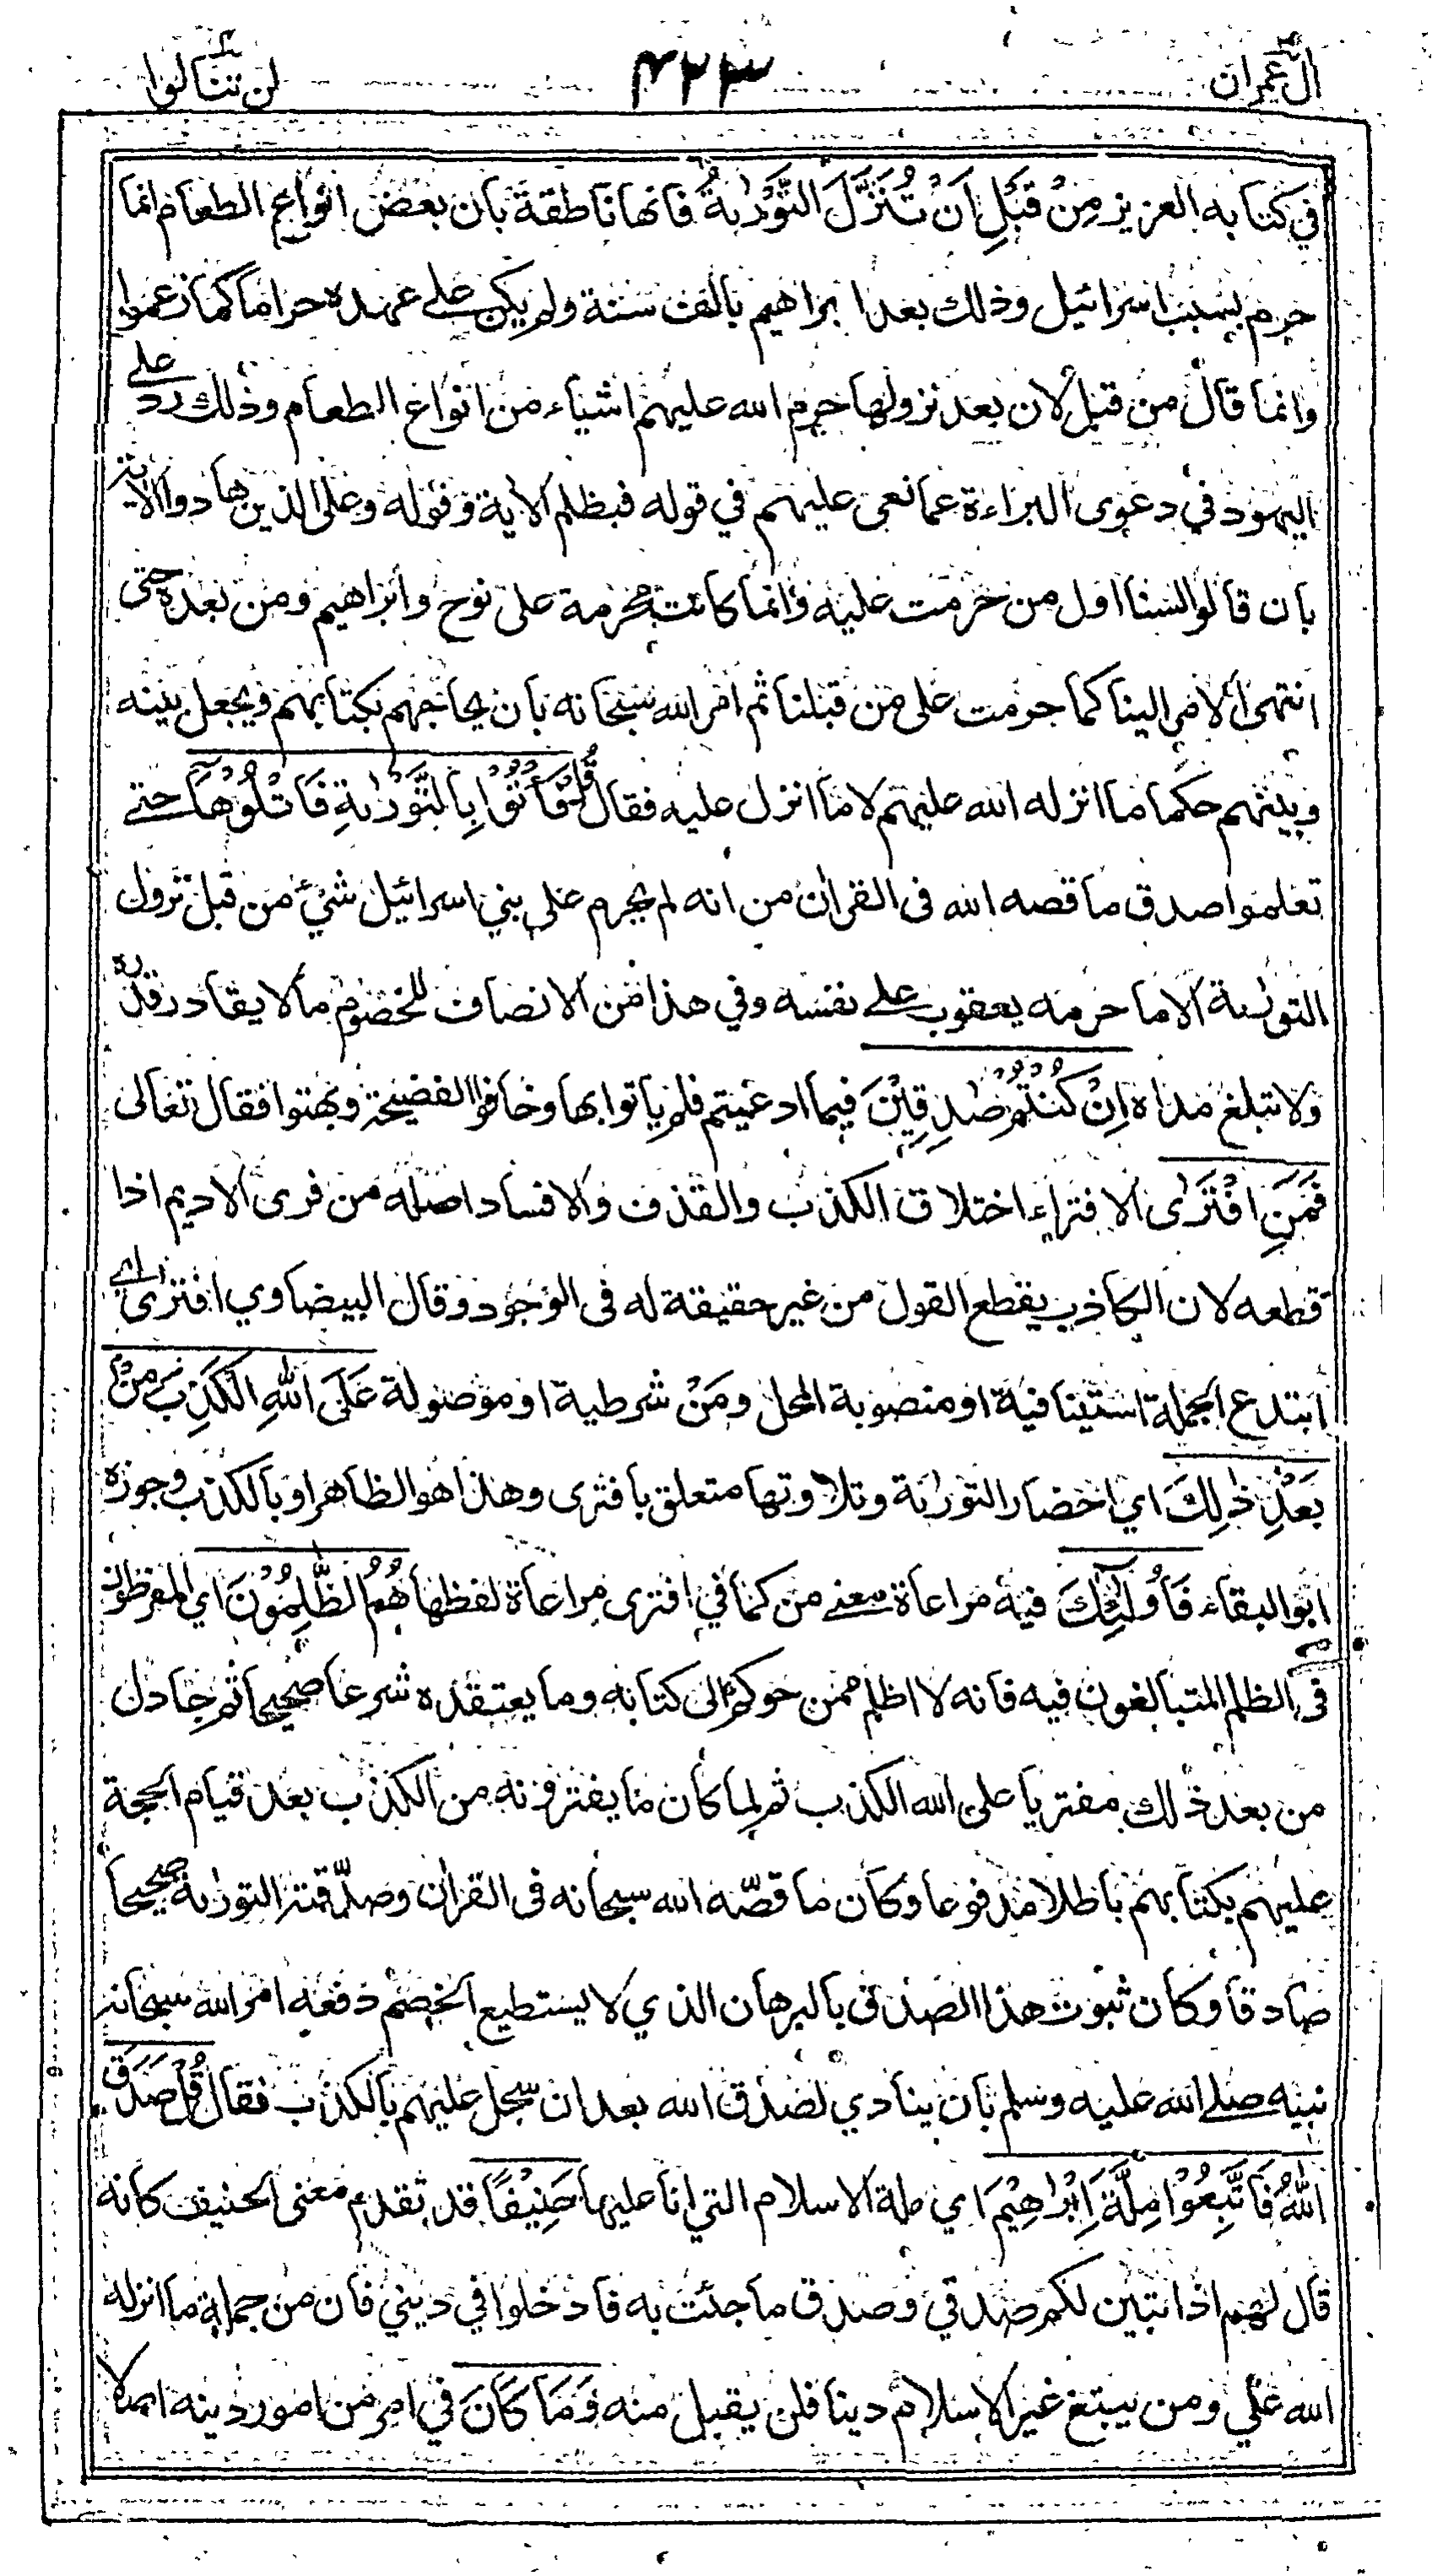 اٰل عمران ۴۲۳ لن تنالوا
في كتابه العزيز مِنْ قَبْلِ اَنْ تُنَزَّلَ التَّوْرٰىةُ فانها ناطقة بان بعض انواع الطعام انما
حرم بسبب اسرائيل وذلك بعد ابراهيم بالف سنة ولم يكن على عهده حراما كما زعموا
وانما قال من قبل لان بعد نزولها حرم الله عليهم اشياء من انواع الطعام وذلك رد على
اليهود في دعوى البراءة عما نعى عليهم في قوله فبظلم الاية وقوله وعلى الذين هادوا الاية
بان قالوا لسنا اول من حرمت عليه وانما كانت محرمة على نوح وابراهيم ومن بعده حتى
انتهى الامر الينا كما حرمت على من قبلنا ثم امر الله سبحانه بان يحاجهم بكتابهم ويجعل بينه
وبينهم حكما ما انزله الله عليهم لا ما انزل عليه فقال قُلْ فَأْتُوْا بِالتَّوْرٰىةِ فَاتْلُوْهَآ حتى
تعلموا صدق ما قصه الله فى القران من انه لم يحرم على بني اسرائيل شئ من قبل نزول
التورٰىة الا ما حرمه يعقوب على نفسه وفي هذا من الانصاف للخصوم ما لا يقادر قدره
ولا تبلغ مداه اِنْ كُنْتُمْ صٰدِقِيْنَ فيما ادعيتم فلم ياتوا بها وخافوا الفضيحة وبهتوا فقال تعالى
فَمَنِ افْتَرٰى الافتراء اختلاق الكذب والقذف والافساد اصله من فرى الاديم اذا
قطعه لان الكاذب يقطع القول من غير حقيقة له فى الوجود وقال البيضاوي افترى اي
ابتدع الجملة استينافية او منصوبة المحل ومَنْ شرطية او موصولة عَلَى اللهِ الْكَذِبَ مِنْ
بَعْدِ ذٰلِكَ اي احضار التورٰىة وتلاوتها متعلق بافترى وهذا هو الظاهر او بالكذب وجوزه
ابو البقاء فَاُولٰٓئِكَ فيه مراعاة معنى من كما في افترى مراعاة لفظها هُمُ الظّٰلِمُوْنَ اي المفرطون
فى الظلم المتبالغون فيه فانه لا اظلم ممن حوكم الى كتابه وما يعتقده شرعا صحيحا ثم جادل
من بعد ذلك مفتريا على الله الكذب ثم لما كان ما يفترونه من الكذب بعد قيام الحجة
عليهم بكتابهم باطلا مدفوعا وكان ما قصّه الله سبحانه فى القران وصدّقته التورٰىة صحيحا
صادقا وكان ثبوت هذا الصدق بالبرهان الذي لا يستطيع الخصم دفعه امر الله سبحانه
نبيه صلى الله عليه وسلم بان ينادي لصدق الله بعد ان سجل عليهم بالكذب فقال قُلْ صَدَقَ
اللّٰهُ فَاتَّبِعُوْا مِلَّةَ اِبْرٰهِيْمَ اي ملة الاسلام التي انا عليها حَنِيْفًا قد تقدم معنى الحنيف كانه
قال لهم اذا تبين لكم صدقي وصدق ما جئت به فادخلوا في ديني فان من جملة ما انزله
الله علي ومن يبتغ غير الاسلام دينا فلن يقبل منه وَمَا كَانَ في امر من امور دينه اصلا